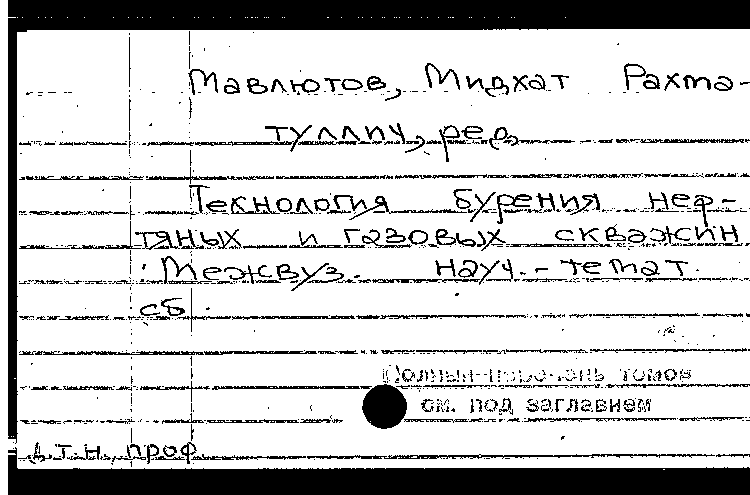 Мавлютов, Мидхат Рахма-
туллич, ред.
Технология бурения неф-
тяных и газовых скважин
: Межвуз. науч.-темат.
сб.
Полный перечень томов
см. под заглавием
д.т.н., проф.